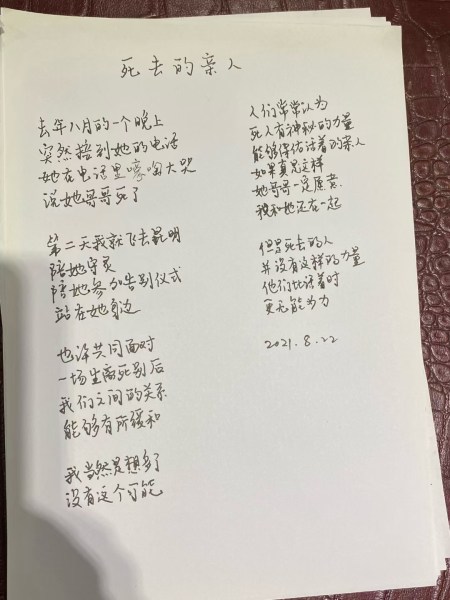 死去的亲人
去年八月的一个晚上
突然接到她的电话
她在电话里嚎啕大哭
说她哥哥死了
第二天我就飞去昆明
陪她守灵
陪她参加告别仪式
站在她身边
也许共同面对
一场生离死别后
我们之间的关系
能够有所缓和
我当然是想多了
没有这个可能
人们常常认为
死人有神秘的力量
能够保佑活着的亲人
如果真是这样
她哥哥一定愿意
我和她还在一起
但是死去的人
并没有这样的力量
他们比活着时
更无能为力
2021.8.22